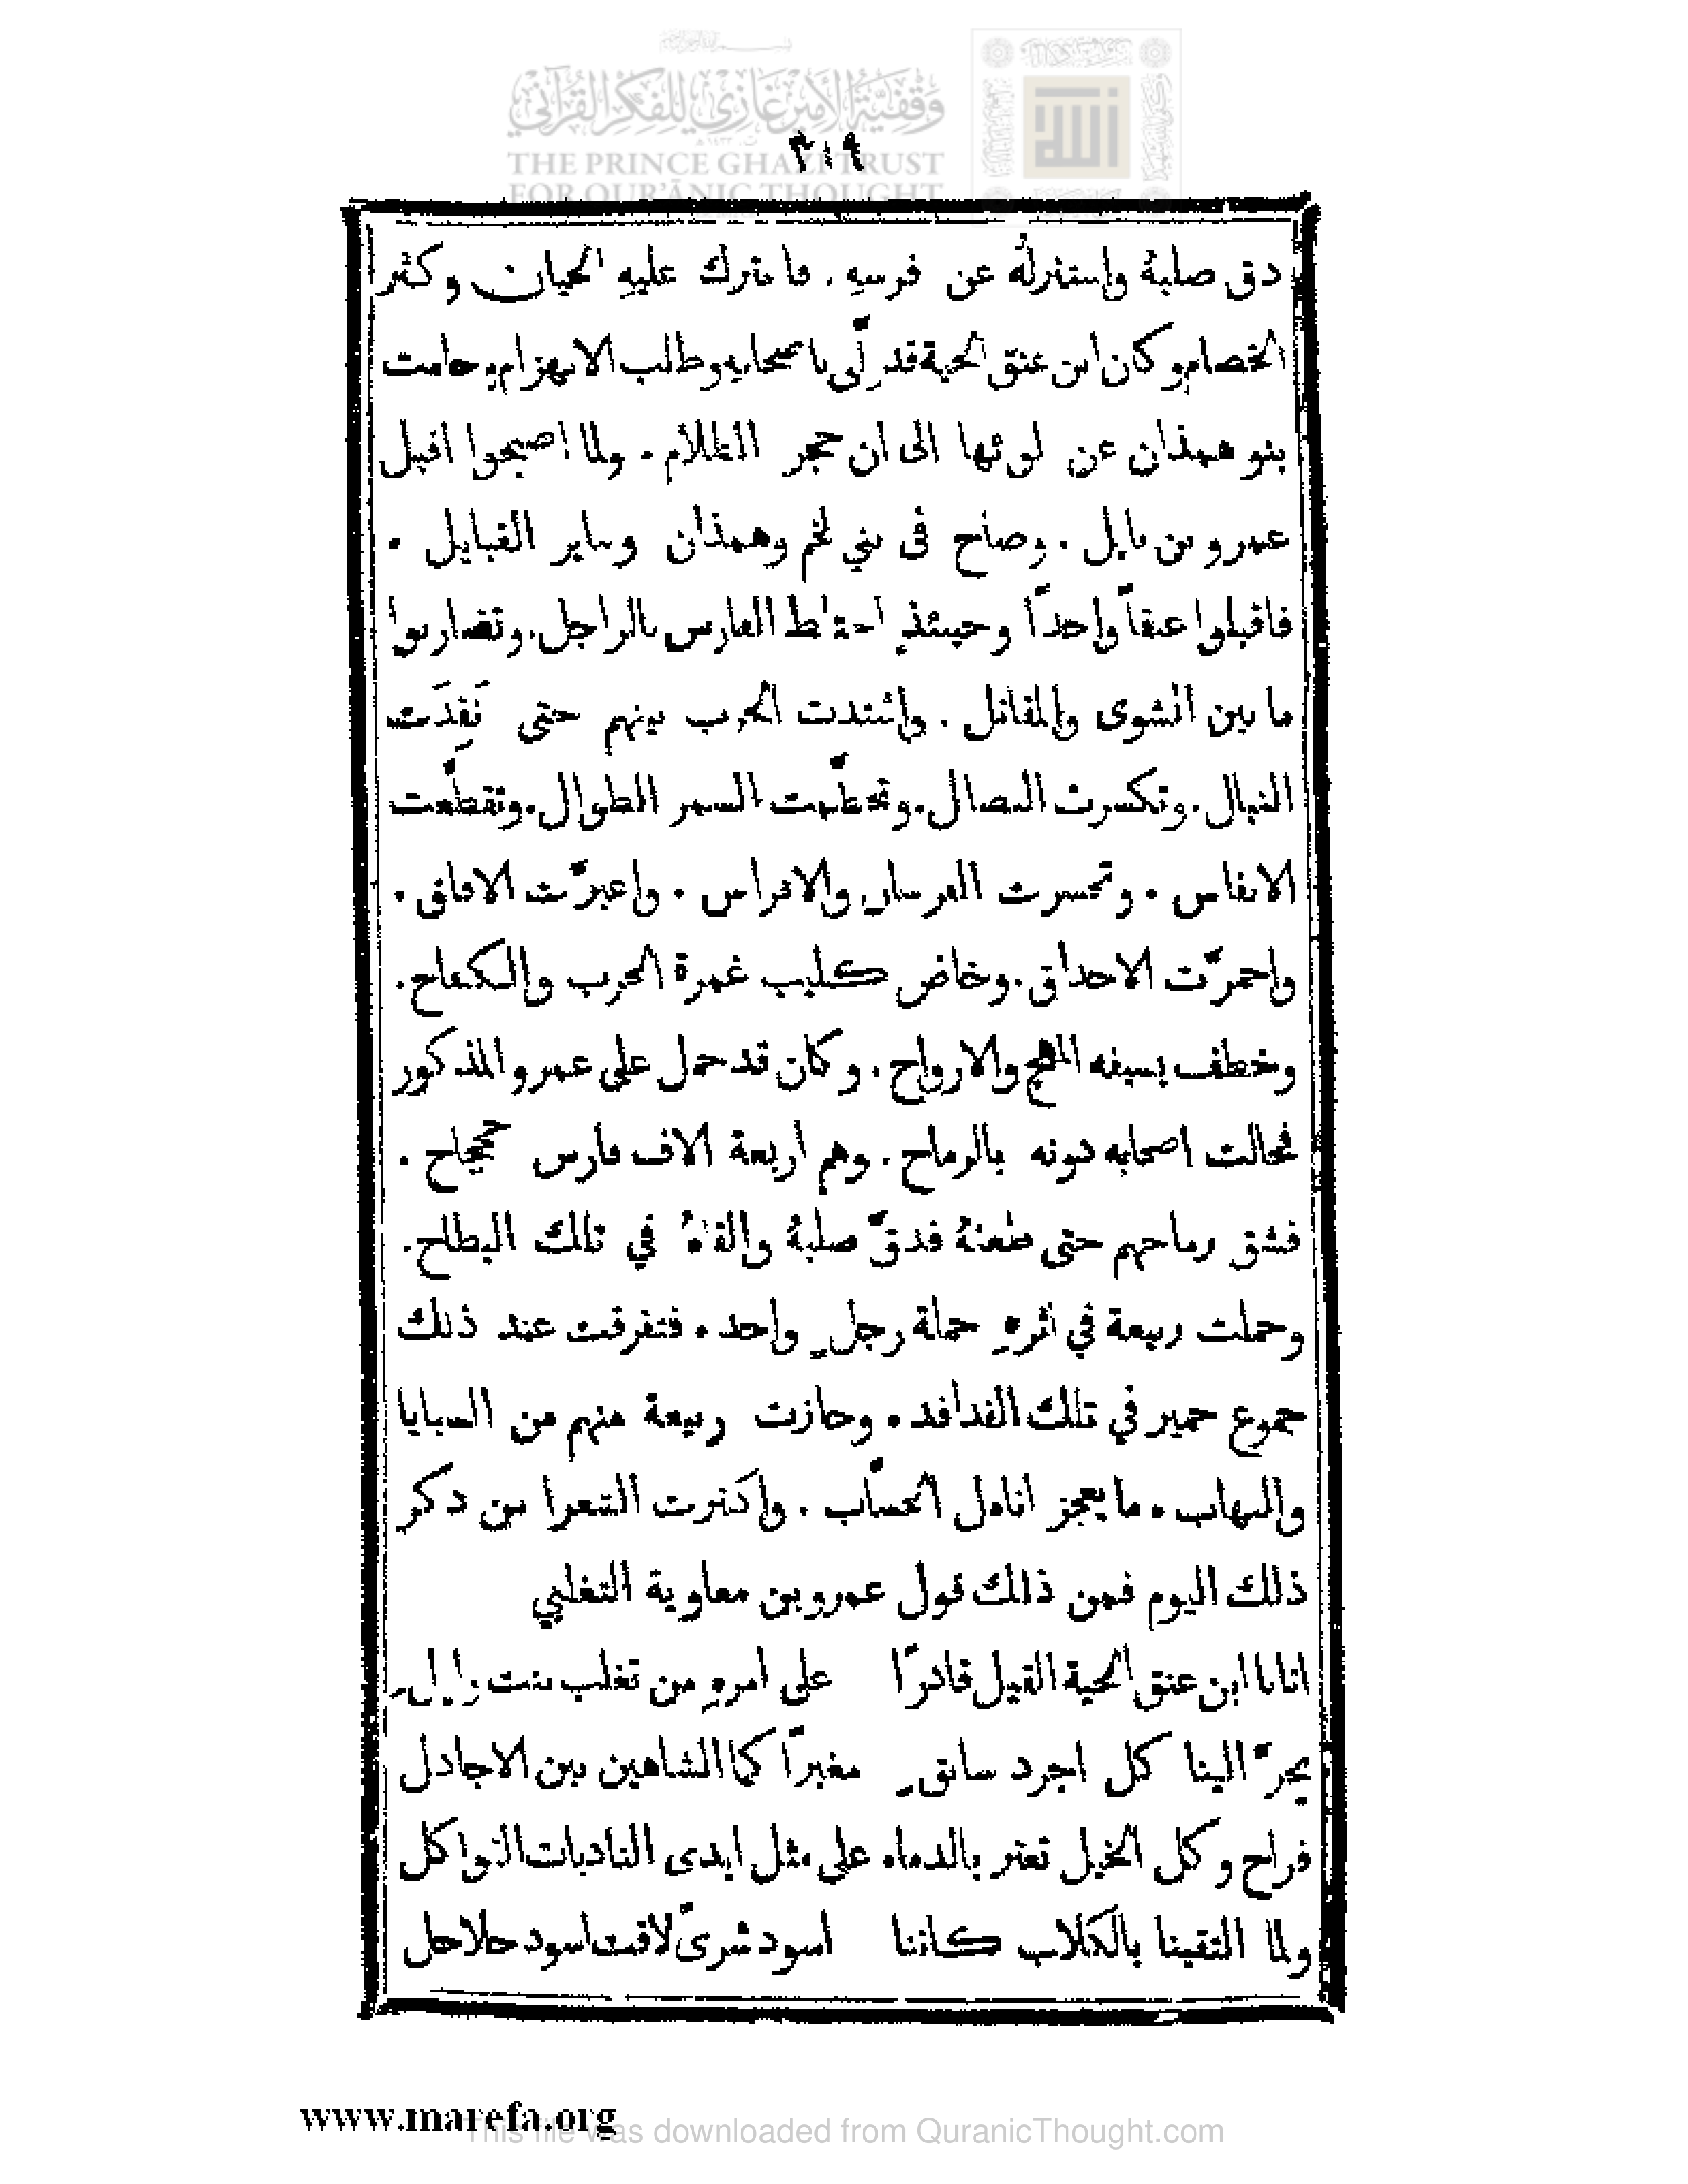 وقفية الأمير غازي للفكر القرآني
THE PRINCE GHAZI TRUST
FOR QUR'ĀNIC THOUGHT
٣١٩
دق صلبهُ واستنزلهُ عن فرسهِ. فاعترك عليهِ الحيان وكثر
الخصام وكان ابن عنق الحية قد ولّى باصحابهِ وطلب الانهزام وحامت
بنو همذان عن لوئها الى ان حجر الظلام. ولما اصبحوا اقبل
عمرو بن بابل. وصاح فى بني لخم وهمذان وساير القبايل.
فاقبلوا عنقاً واحداً وحينئذٍ اختلط الفارس بالراجل. وتضاربوا
ما بين الشوى والمقاتل. واشتدت الحرب بينهم حتى نَفِدَت
النبال. وتكسرت النصال. وتحطّمت السمر الطوال. وتقطّعت
الانفاس. وتحسرت الفرسان والافراس. واغبرّت الافاق.
واحمرّت الاحداق. وخاض كليب غمرة الحرب والكفاح.
وخطف بسيفه المهج والارواح. وكان قد حمل على عمرو المذكور
فحالت اصحابه دونه بالرماح. وهم اربعة الاف فارس جحجاح.
فشق رماحهم حتى طعنهُ فدقّ صلبهُ والقاهُ في تلك البطاح.
وحملت ربيعة في اثرهِ حملة رجلٍ واحد. فتفرقت عند ذلك
جموع حمير في تلك الفدافد. وحازت ربيعة منهم من السبايا
والنهاب. ما يعجز انامل الحسّاب. واكثرت الشعرا من ذكر
ذلك اليوم فمن ذلك قول عمرو بن معاوية التغلبي
اتانا ابن عنق الحية القيل قادرًا على امرهِ من تغلب بنت وايلِ
يجرّ الينا كل اجرد سابقٍ مغبرًا كما الشاهين بين الاجادل
فراح وكل الخيل تعثر بالدماء على مثل ايدى النادبات الثواكل
ولما التقينا بالكلاب كاننا اسود شرىً لاقت اسود حلاحل
www.marefa.org
This file was downloaded from QuranicThought.com